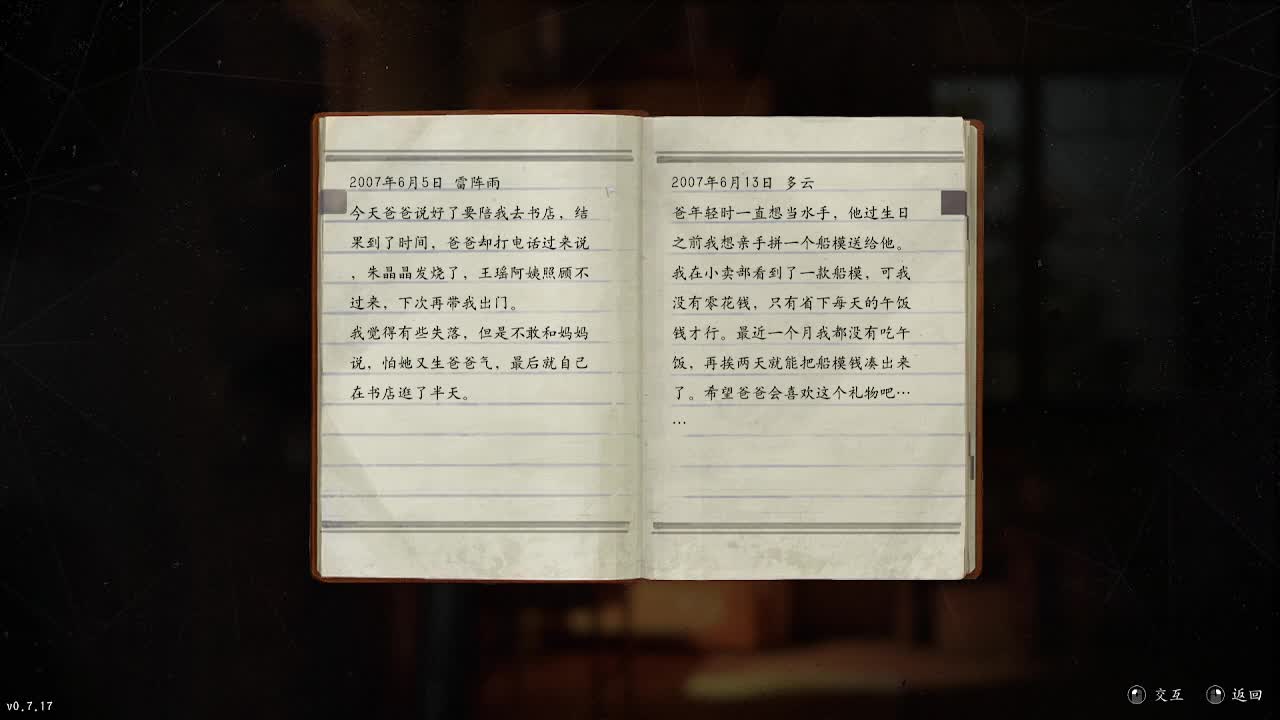 2007年6月5日 雷阵雨
今天爸爸说好了要陪我去书店，结
果到了时间，爸爸却打电话过来说
，朱晶晶发烧了，王瑶阿姨照顾不
过来，下次再带我出门。
我觉得有些失落，但是不敢和妈妈
说，怕她又生爸爸气，最后就自己
在书店逛了半天。
2007年6月13日 多云
爸年轻时一直想当水手，他过生日
之前我想亲手拼一个船模送给他。
我在小卖部看到了一款船模，可我
没有零花钱，只有省下每天的午饭
钱才行。最近一个月我都没有吃午
饭，再挨两天就能把船模钱凑出来
了。希望爸爸会喜欢这个礼物吧…
…
v0.7.17
交互 返回